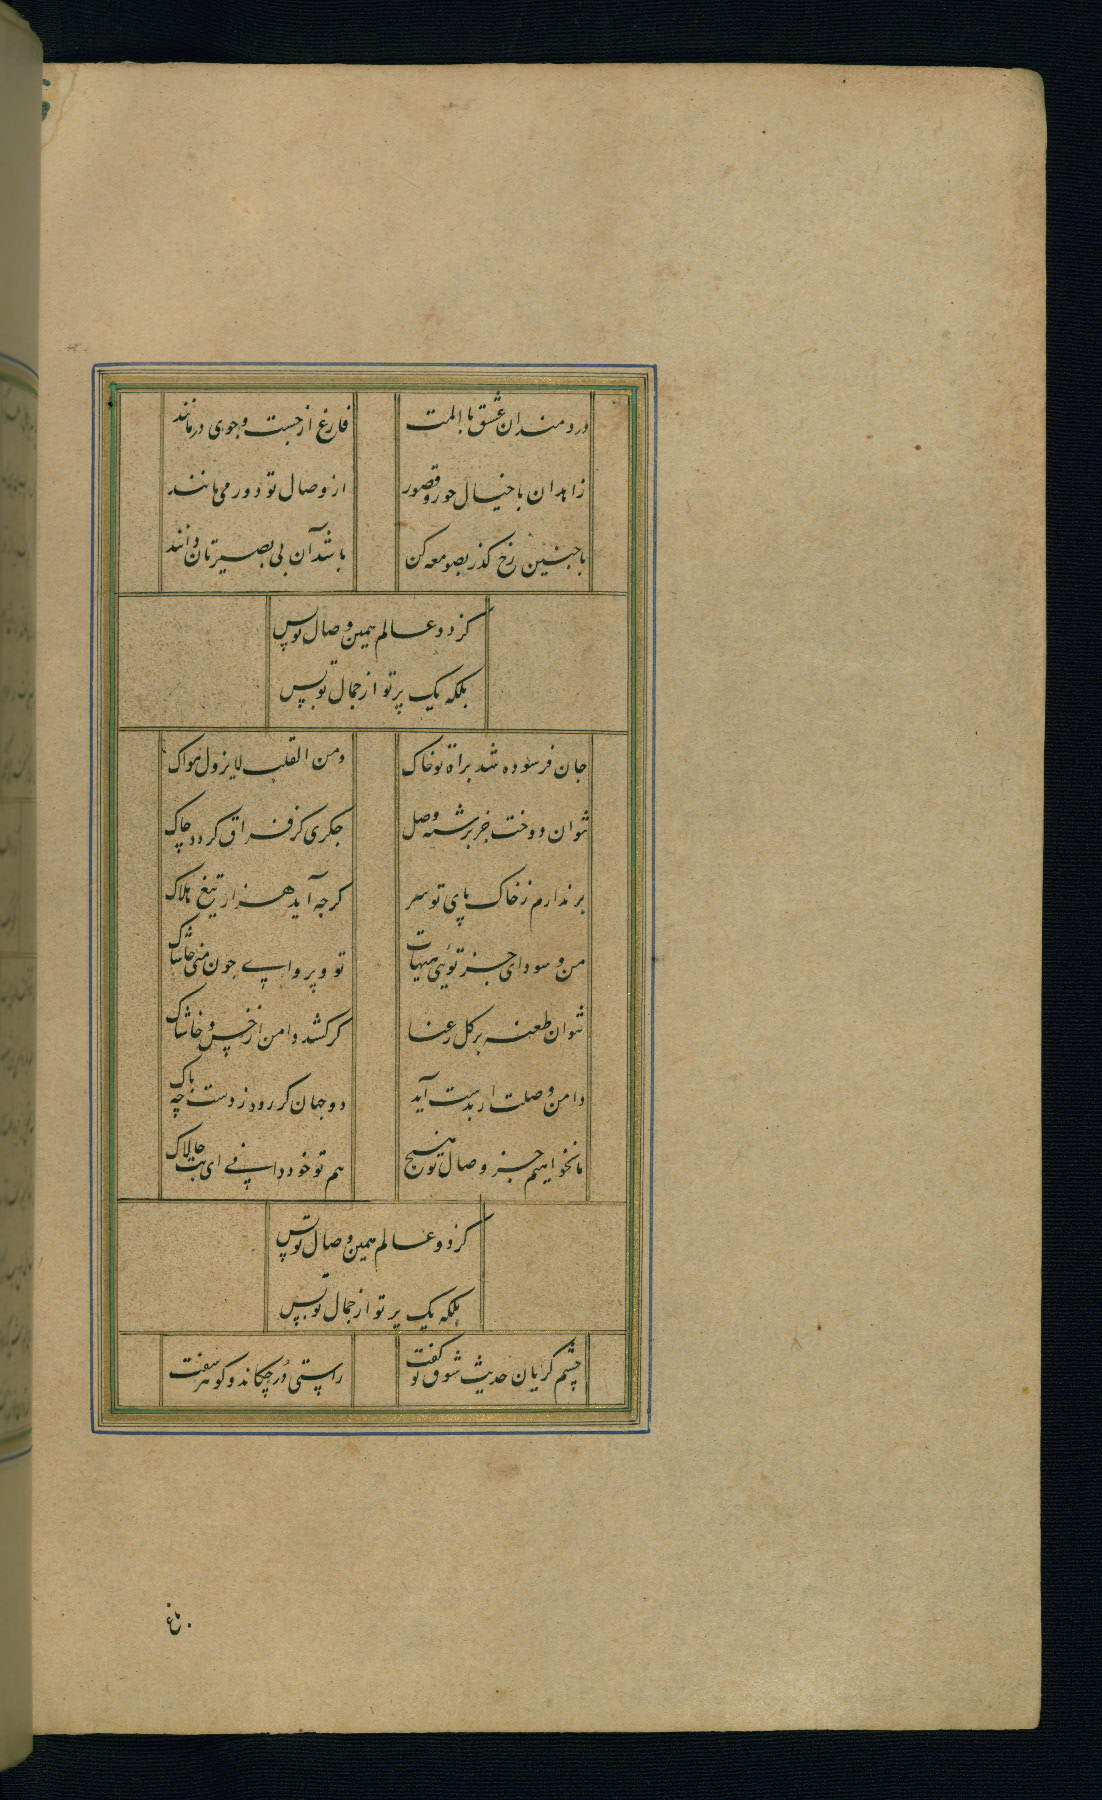 دردمندان عشق با المت فارغ از جست وجوی درمانند
زاهدان با خیال حور و قصور از وصال تو دور می‌مانند
با جنین رخ کذر بصومعه کن باشد آن بی بصیرتان دانند
کز دو عالم همین وصال تو بس
بلکه یک پرتو از جمال تو بس
جان فرسوده شد براه تو خاک ومن القلب لا یزول هواک
نتوان دوخت جز برشته وصل جکری کز فراق کردد چاک
بر ندارم ز خاک پای تو سر کرچه آید هزار تیغ هلاک
من و سودای جز توئی هیهات تو و پروای چون منی حاشاک
نتوان طعنه بر کل رعنا کر کشد دامن از خس و خاشاک
دامن وصلت ار بدست آید دو جهان کر رود ز دست چه باک
ما نخواهیم جز وصال تو هیچ هم تو خود دانی ای بت چالاک
کز دو عالم همین وصال تو بس
بلکه یک پرتو از جمال تو بس
چشم کریان حدیث شوق تو کفت راستی در چکاند و کوهر سفت